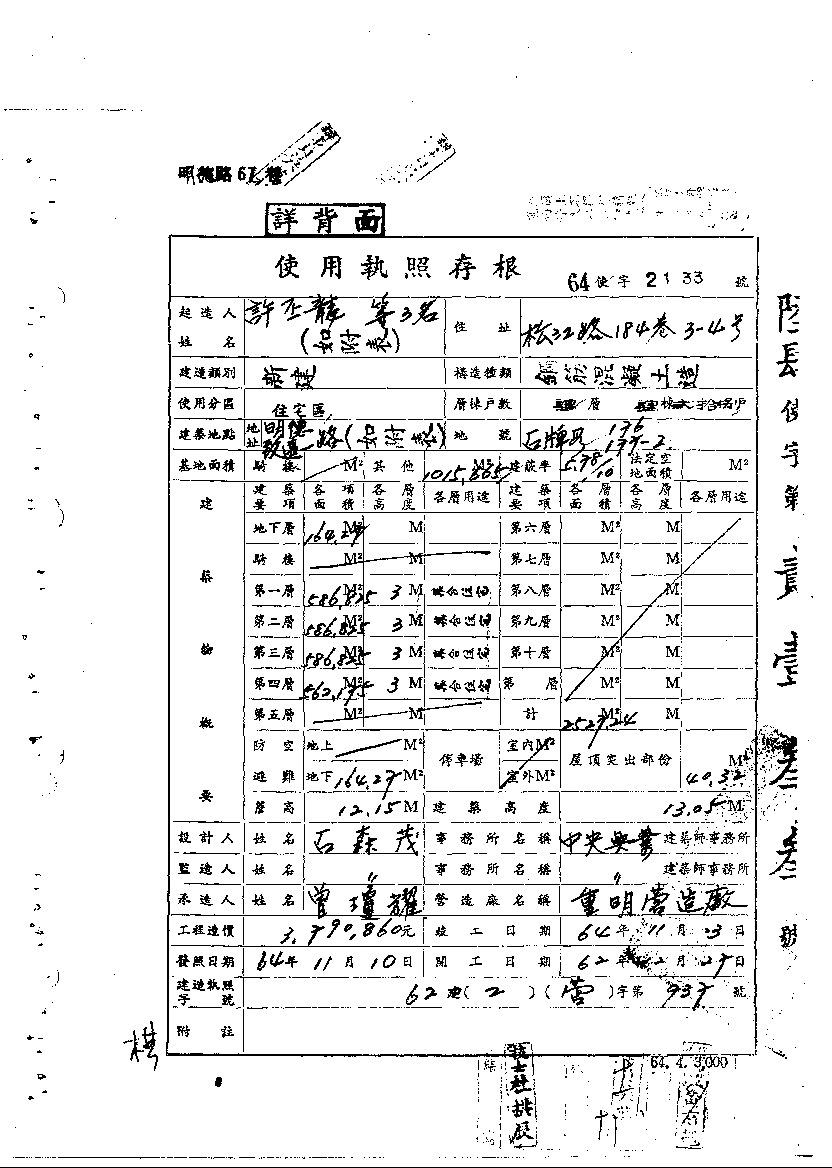 明德路67巷
詳背面
使用執照存根
64使字2133號
起造人姓名 許丕龍 等3名(如附表) 住址 松江路184巷3-4号
建造類別 新建 構造種類 鋼筋混凝土造
使用分區 住宅區 層棟戶數 層 棟 戶
建築地點 地址 明德路(如附表) 地號 石牌段 136 137-2
基地面積 騎樓 M² 其他 1015,865 M² 建蔽率 5.78/10 法定空地面積 M²
建築物概要 建築要項 各項面積 各層高度 各層用途 建築要項 各層面積 各層高度 各層用途
地下層 164,27 M² M 第六層 M² M
騎樓 M² M 第七層 M² M
第一層 586,825 M² 3 M 集合住宅 第八層 M² M
第二層 586,825 M² 3 M 集合住宅 第九層 M² M
第三層 586,825 M² 3 M 集合住宅 第十層 M² M
第四層 562,195 M² 3 M 集合住宅 第 層 M² M
第五層 M² M 計 M² M
防空避難 地上 M² 停車場 室內M² 屋頂突出部份 40,32 M²
地下 164,27 M² 室外M²
簷高 12,15 M 建築高度 13,05 M
設計人 姓名 石森茂 事務所名稱 中央興業 建築師事務所
監造人 姓名 〃 事務所名稱 〃 建築師事務所
承造人 姓名 曾瓊耀 營造廠名稱 重明營造廠
工程造價 3,790,860元 竣工日期 64年11月23日
發照日期 64年11月10日 開工日期 62年12月27日
建造執照字號 62建(2)(營)字第937號
附註
棋
64.4.3,000
陸長使字第貳壹叁叁號